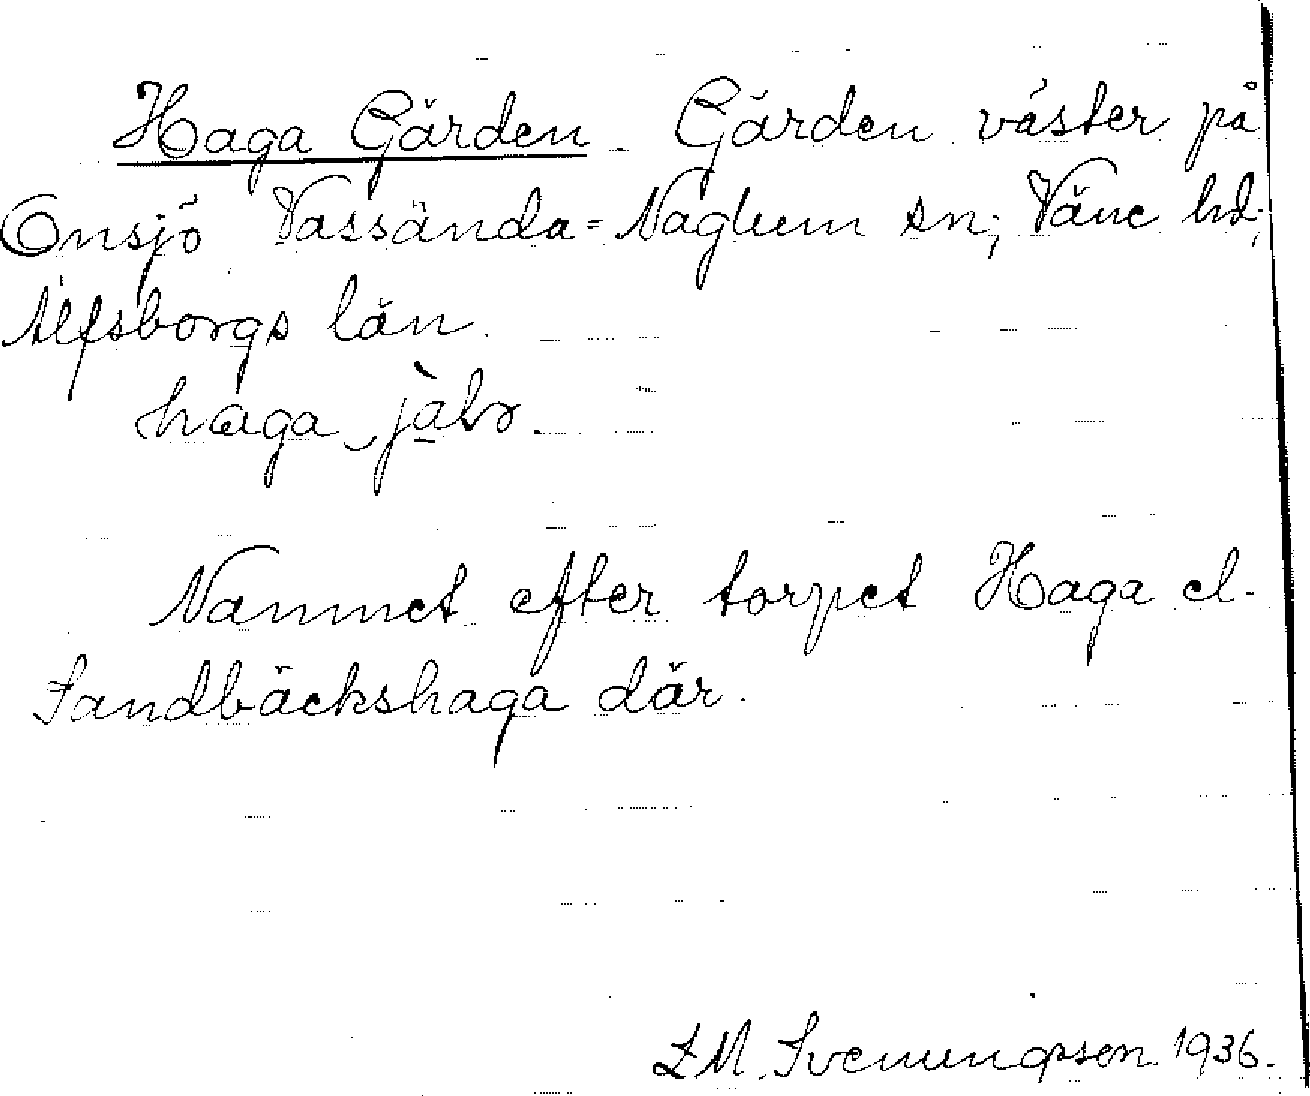 Haga Gärden. Gärden väster på
Onsjö Vassända=Naglum sn; Väne hd;
Älfsborgs län.
haga jàlɹ.
Namnet efter torpet Haga el.
Sandbäckshaga där.
L M. Svenungsson 1936.